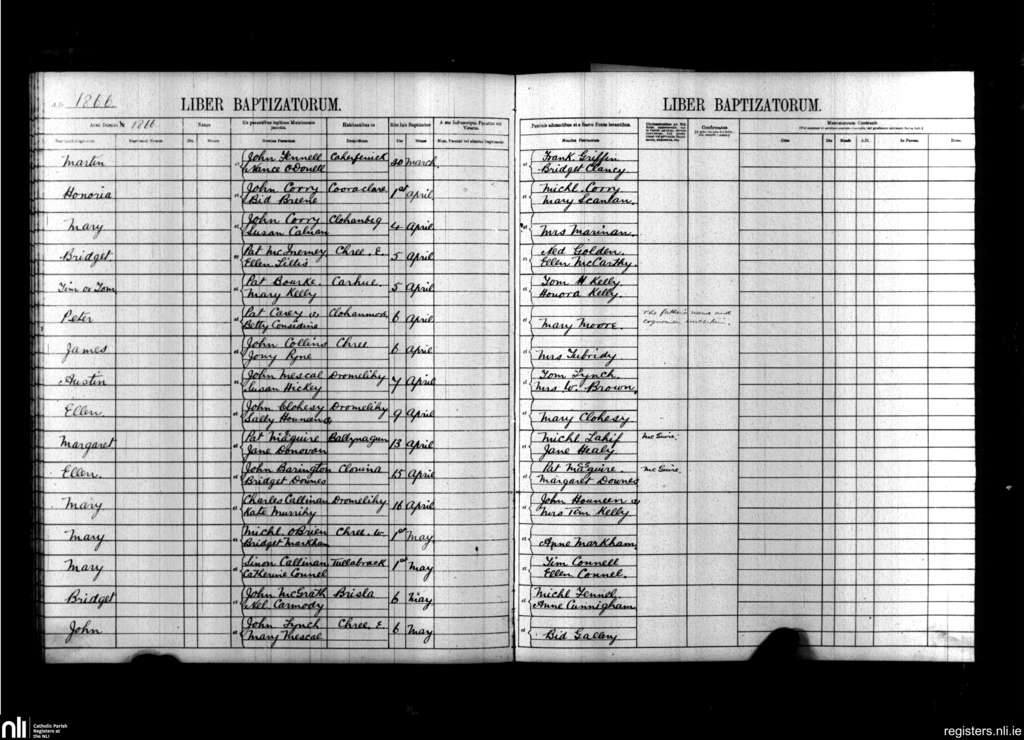 A.D. 1866.
LIBER BAPTIZATORUM.
Anno Domini 1866.
Natus
Habitantibus in
Rite fuit Baptizatus
Die
Mense
Die
Mense
Martin
John Fennell
Nance O'Donell
30 March
Honoria
John Corry
Bid Breene
Cooraclare
1st April
Mary
John Corry
Susan
Clohanbeg
4 April
Bridget
Pat McInerney
Ellen
Chree. E.
5 April
Tim or Tom
Pat Bourke.
Mary Kelly
Carhue.
5 April
Peter
Pat Carey
Betty Considine
Clohanmore
6 April
James
John Collins
Jony Ryne
Chree
6 April
Austin
John Mescal
Susan Hickey
Dromelihy
7 April
Ellen
John Clohesy
Sally
Dromelihy
9 April
Margaret
Pat Maguire
Jane Donovan
Ballynagun
13 April
Ellen.
John Barington
Bridget Downes
Clonina
15 April
Mary
Charles Callinan
Kate Murrihy
Dromelihy
16 April
Mary
Michl. O'Brien
Bridget Markham
Chree. W.
1st May
Mary
Simon Callinan
Catherine Connel
Tullabrack
1st May
Bridget
John McGrath
Nel Carmody
Brisla
6 May
John
John Lynch
Mary Mescal
Chree. E.
6 May
LIBER BAPTIZATORUM.
Confirmatus
Matrimonium Contraxit
Die
Mense
A.D.
Frank Griffin
Bridget Clancy
Michl. Corry
Mary Scanlan.
Mrs Marinan.
Ned Golden.
Ellen McCarthy.
Tom H Kelly
Honora Kelly.
Mary Moore.
The father's name and
cognomen uncertain.
Mrs Tubridy
Tom Lynch.
Mrs W. Brown.
Mary Clohesy
Michl Lahif
Jane Healy
McGuire.
Pat Maguire.
Margaret Downes
McGuire.
John
Mrs Tim Kelly
Anne Markham.
Tim Connell
Ellen Connel.
Michl Fennel
Anne Cunnigham
Bid
nli
Catholic Parish
Registers at
the NLI
registers.nli.ie